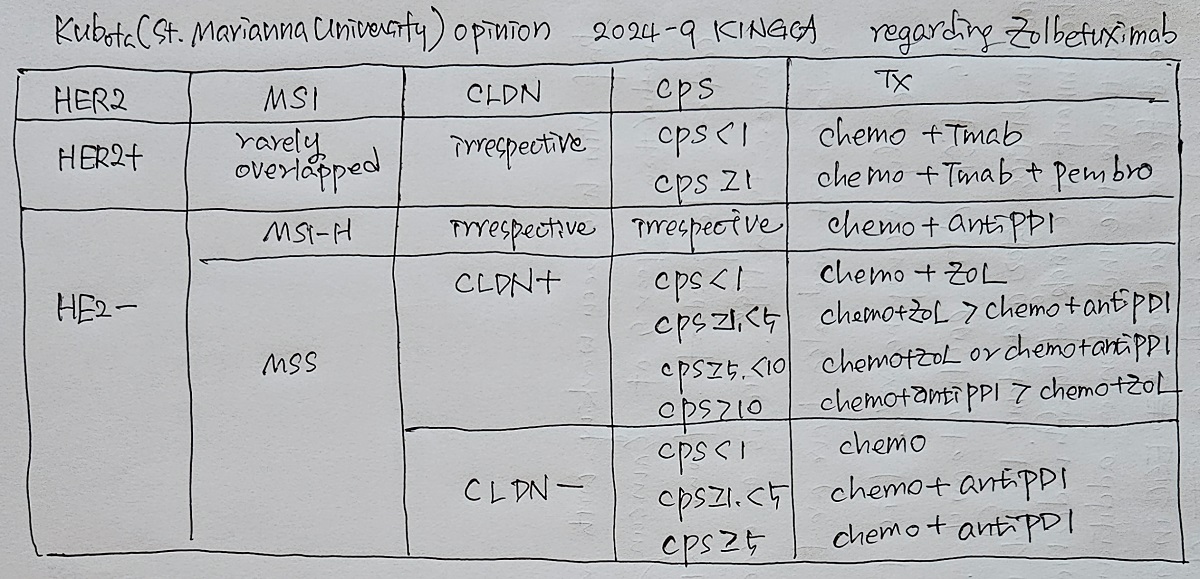 Kubota (St. Marianna University) opinion 2024-9 KINGCA regarding Zolbetuximab
HER2 MSI CLDN CPS TX
HER2+ rarely overlapped irrespective CPS<1 chemo + Tmab
CPS≥1 chemo + Tmab + pembro
HE2- MSI-H irrespective irrespective chemo + antiPD1
MSS CLDN+ CPS<1 chemo + ZOL
CPS≥1.<5 chemo+ZOL > chemo+antiPD1
CPS≥5.<10 chemo+ZOL or chemo+antiPD1
CPS≥10 chemo+antiPD1 > chemo+ZOL
CLDN- CPS<1 chemo
CPS≥1.<5 chemo + antiPD1
CPS≥5 chemo + antiPD1